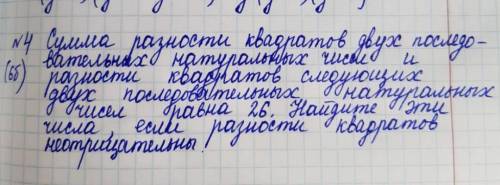 №4 Сумма разности квадратов двух последо-
(6б) вательных натуральных чисел и
разности квадратов следующих
двух последовательных натуральных
чисел равна 26. Найдите эти
числа, если разности квадратов
неотрицательны.